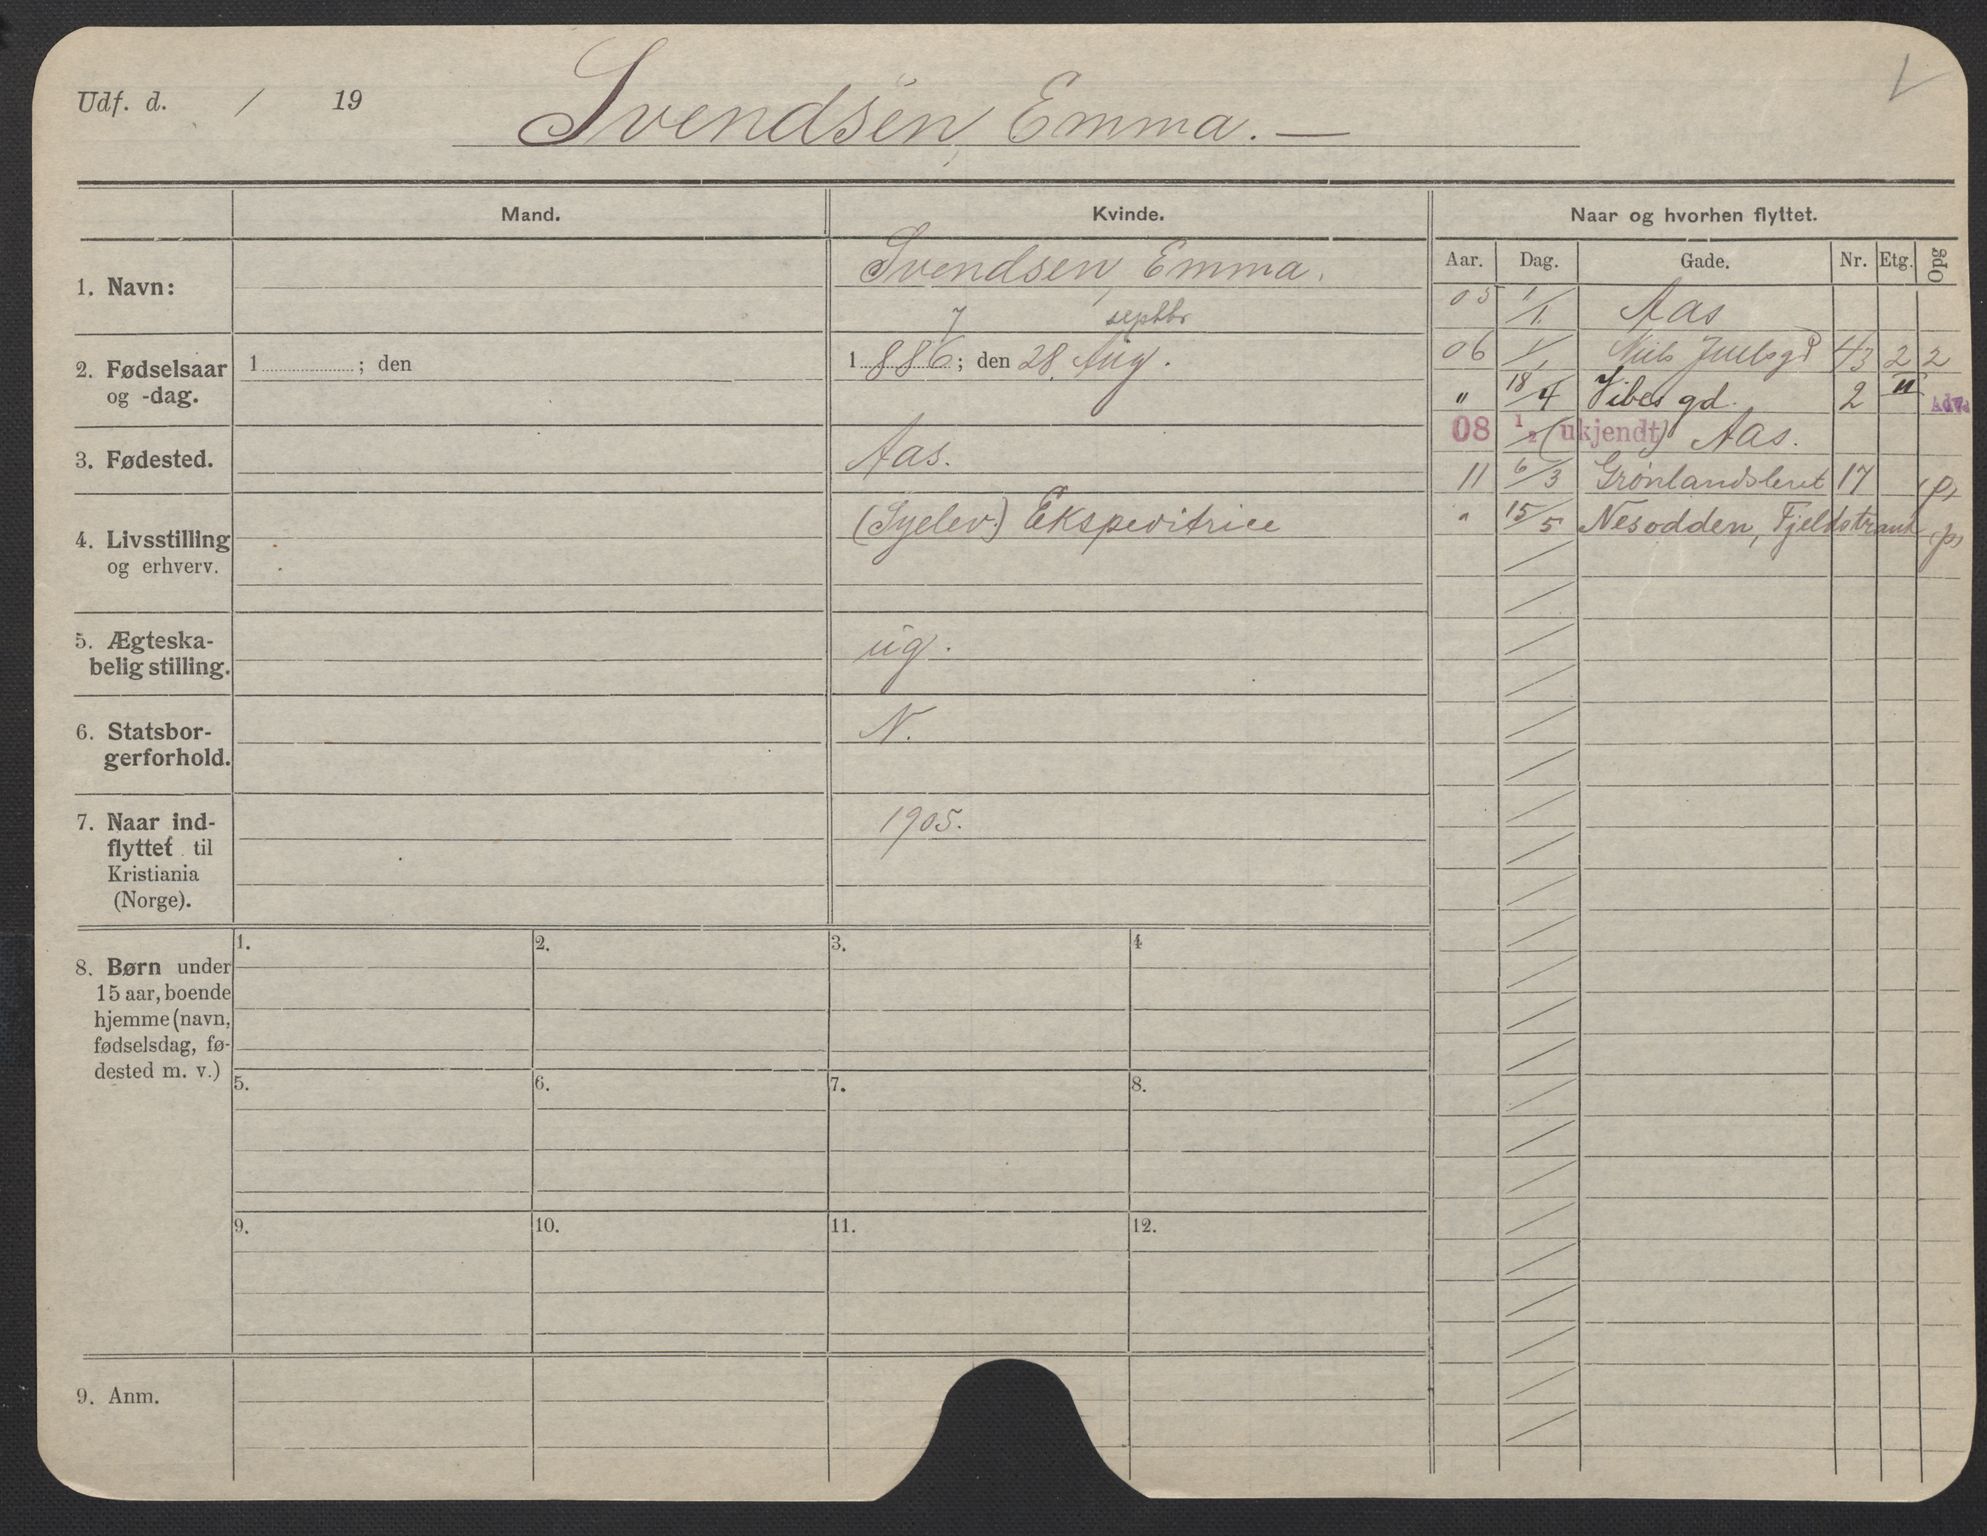 Udf. d. / 19
Svendsen, Emma. —
Mand. Kvinde. Naar og hvorhen flyttet.
Aar. Dag. Gade. Nr. Etg. Opg
1. Navn: Svendsen, Emma.
7 septbr
2. Fødselsaar og -dag. 1 ; den
1886; den 28. Aug.
3. Fødested. Aas.
4. Livsstilling og erhverv. (Syelev.) Ekspeditrice
5. Ægteskabelig stilling. ug.
6. Statsborgerforhold. N.
7. Naar indflyttet til Kristiania (Norge). 1905.
05 1/1 Aas
06 1/1 Niels Juelsgd 43 2 2
" 18/4 Vibes gd. 2 II
08 1/2 (ukjendt) Aas.
11 6/3 Grønlandsleret 17 (p)
" 15/5 Nesodden, Fjeldstrand (p)
8. Børn under
15 aar, boende
hjemme (navn,
fødselsdag, fø-
dested m. v.)
1. 2. 3. 4
5. 6. 7. 8.
9. 10. 11. 12.
9. Anm.